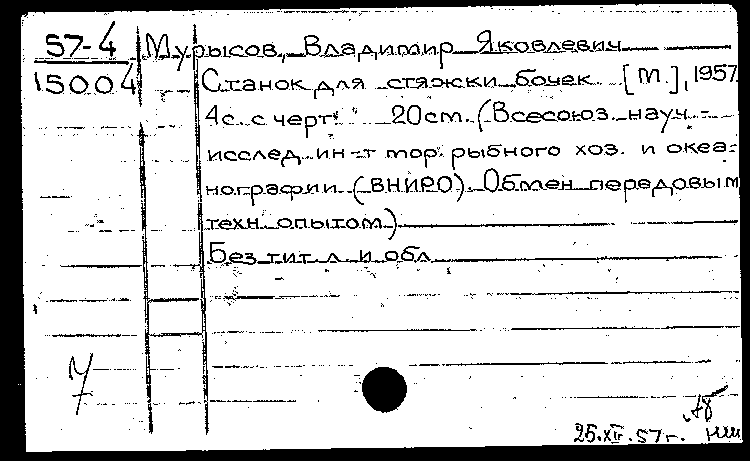 57-4 Мурысов, Владимир Яковлевич
15004 Станок для стяжки бочек [М.], 1957
4с. с черт. 20см. (Всесоюз. науч.-
исслед. ин-т мор. рыбного хоз. и океа-
нографии (ВНИРО). Обмен передовым
техн. опытом)
Без тит. л. и обл.
25.XII.57г.